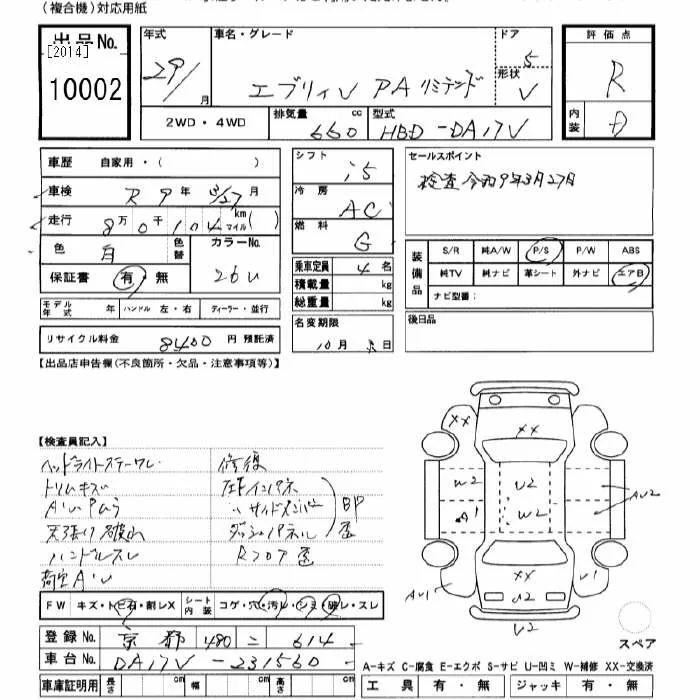 （複合機）対応用紙
出品No.
[2014]
10002
年式
29/
月
車名・グレード
エブリィV PA リミテッド
ドア
5
形状
V
評価点
R
内装
D
2WD・4WD
排気量
660
cc
型式
HBD-DA17V
車歴
自家用・(　　　　)
車検
R 9 年 3/27 月
走行
8 万 0 千 104 km マイル ( )
色
白
色替
カラーNo.
26U
保証書
有・無
モデル年式
年
ハンドル 左・右
ディーラー・並行
リサイクル料金
8400 円 預託済
シフト
i5
冷房
AC
燃料
G
乗車定員
4 名
積載量
kg
総重量
kg
名変期限
10月 日
セールスポイント
検査 令和9年3月27日
装備品
S/R 純A/W P/S P/W ABS
純TV 純ナビ 革シート 外ナビ エアB
ナビ型番：
後日品
【出品店申告欄(不良箇所・欠品・注意事項等)】
【検査員記入】
トリムキズ
天張り破れ
ハンドルスレ
荷室A・U
修復
インパネ
サイドメンバー
ダッシュパネル
Rフロア
FW キズ・トビ石・割レX
シート内装
コゲ・穴・汚レ・シミ・破レ・スレ
登録No.
京都 480 ニ 614
車台No.
DA17V-231560
車庫証明用
長さ cm 幅 cm 高さ cm
XX
XX
W2
U2
A1
W2
AU2
XX
U2
AU1
U1
U2
スペア
A-キズ C-腐食 E-エクボ S-サビ U-凹ミ W-補修 XX-交換済
工具 有・無 ジャッキ 有・無